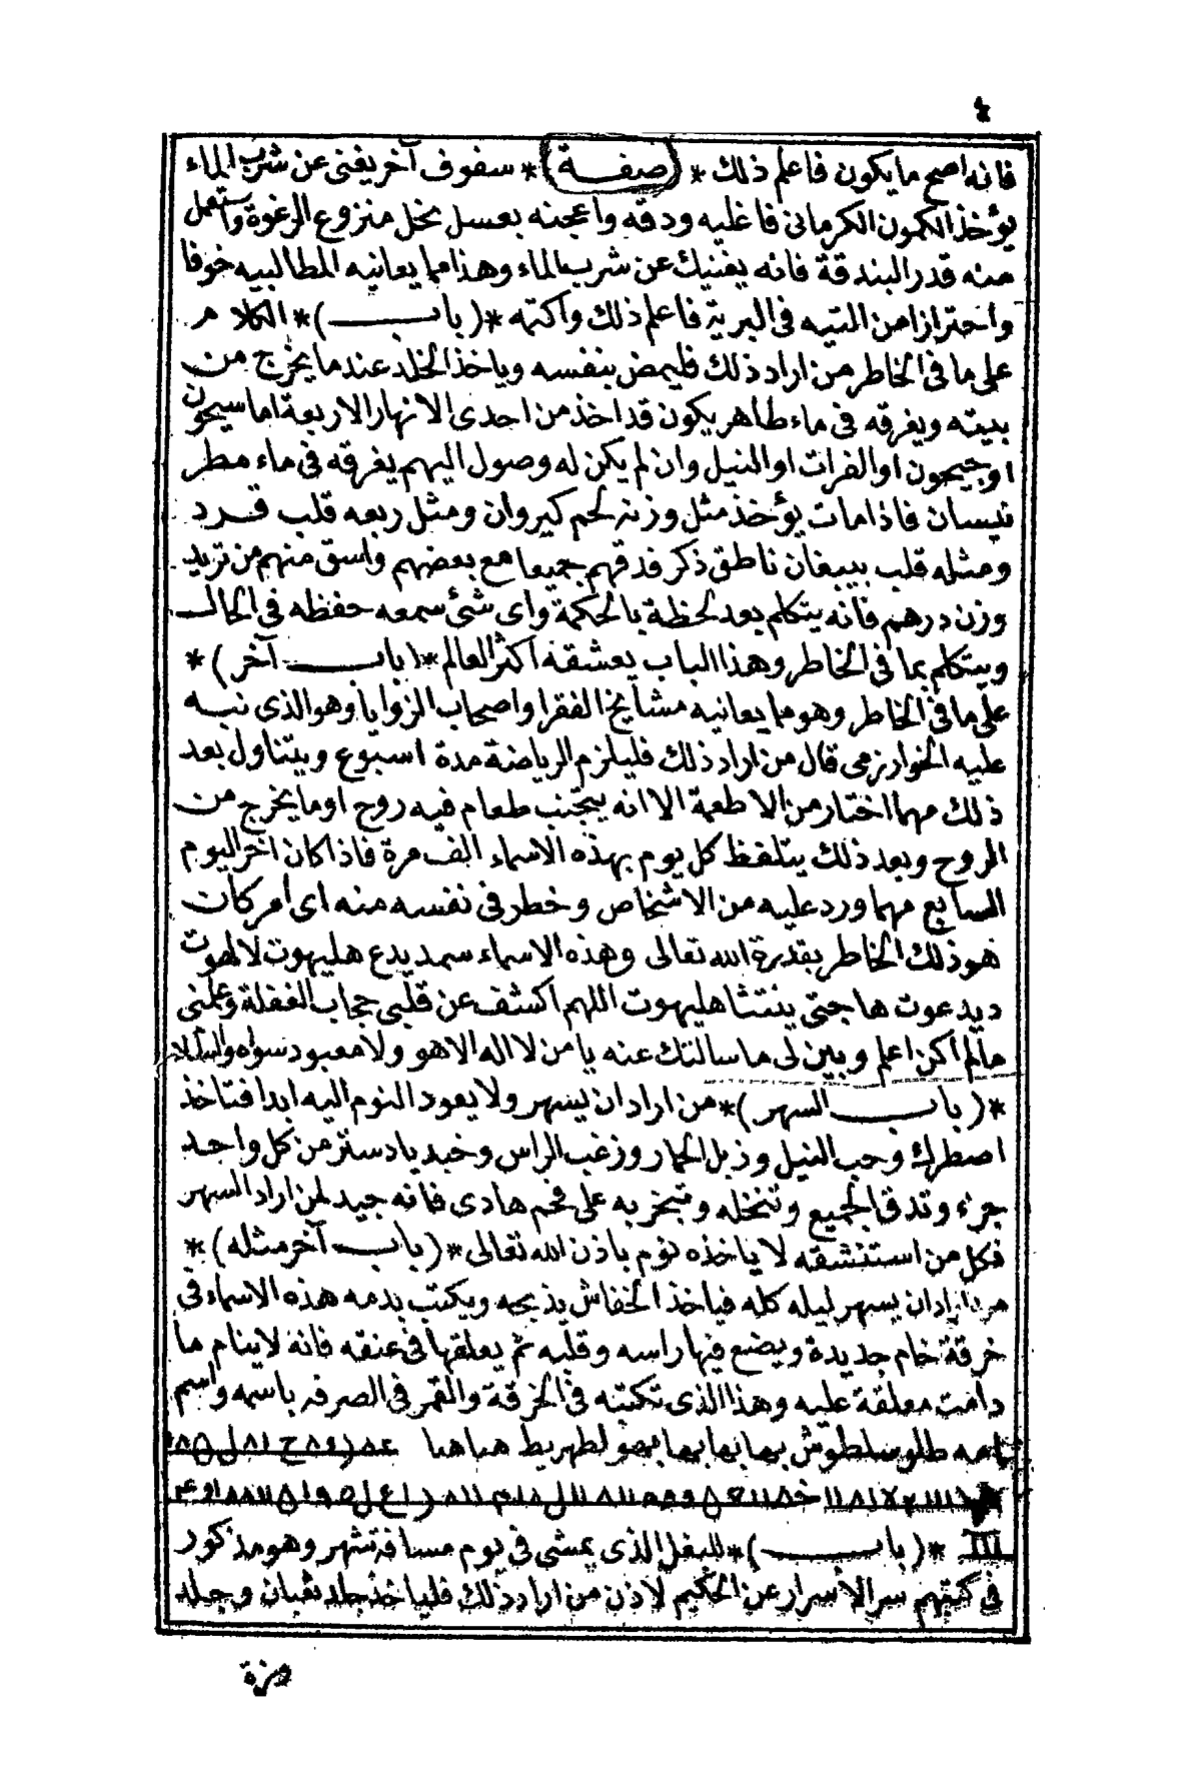 ٤
فانه اصح ما يكون فاعلم ذلك * (صفــة) * سفوف آخر يغنى عن شرب الماء
يؤخذ الكمون الكرمانى فاغليه ودقه واعجنه بعسل نحل منزوع الرغوة واستعمل
منه قدر البندقة فانه يغنيك عن شرب الماء وهذا مما يعانيه المطالبيه خوفا
واحترازا من التيه فى البرية فاعلم ذلك واكتمه *(باب)* الكلام
على ما فى الخاطر من اراد ذلك فليمض بنفسه وياخذ الخلد عندما يخرج من
بيته ويغرقه فى ماء طاهر يكون قد اخذ من احدى الانهار الاربعة اما سيحون
او جيحون او الفرات او النيل وان لم يكن له وصول اليهم يغرقه فى ماء مطر
نيسان فاذا مات يؤخذ مثل وزنه لحم كيروان ومثل ربعه قلب قرد
ومثله قلب بيبغان ناطق ذكر فدقهم جميعا مع بعضهم واسق منهم من تريد
وزن درهم فانه يتكلم بعد لحظة بالحكمة واى شئ سمعه حفظه فى الحال
ويتكلم بما فى الخاطر وهذا الباب يعشقه اكثر العالم *(باب آخر)*
على ما فى الخاطر وهو مما يعانيه مشايخ الفقرا واصحاب الزوايا وهو الذى نبه
عليه الخوارزمى قال من اراد ذلك فليلزم الرياضة مدة اسبوع ويتناول بعد
ذلك مهما اختار من الاطعمة الا انه يتجنب طعام فيه روح او ما يخرج من
الروح وبعد ذلك يتلفظ كل يوم بهذه الاسماء الف مرة فاذا كان آخر اليوم
السابع مهما ورد عليه من الاشخاص وخطر فى نفسه منه اى امر كان
هو ذلك الخاطر بقدرة الله تعالى وهذه الاسماء سمد يدع هليهوت لالهوت
ديدعوت ها حتى ينتثا هليهوت اللهم اكشف عن قلبى حجاب الغفلة وعلمنى
مالم اكن اعلم وبين لى ما سالتك عنه يا من لا اله الا هو ولا معبود سواه والسلام
*(باب السهر)* من اراد ان يسهر ولا يعود النوم اليه ابدا فتاخذ
اصطرك وحب النيل وذبل الحمار وزغب الراس وخبد يادستر من كل واحد
جزء وتدق الجميع وتنخله وتبخر به على فحم هادى فانه جيد لمن اراد السهر
فكل من استنشقه لا ياخذه نوم باذن الله تعالى *(باب آخر مثله)*
من اراد ان يسهر ليله كله فياخذ الخفاش يذبحه ويكتب بدمه هذه الاسماء فى
خرقة خام جديدة ويضع فيها راسه وقلبه ثم يعلقها فى عنقه فانه لا ينام ما
دامت معلقة عليه وهذا الذى تكتبه فى الخرقة والقمر فى الصرفه باسمه واسم
امه طلوسلطوش
*(باب)* للبغل الذى يمشى فى يوم مسافة شهر وهو مذكور
فى كتبهم سر الاسرار عن الحكيم لاذن من اراد ذلك فلياخذ جلد ثعبان وجلد